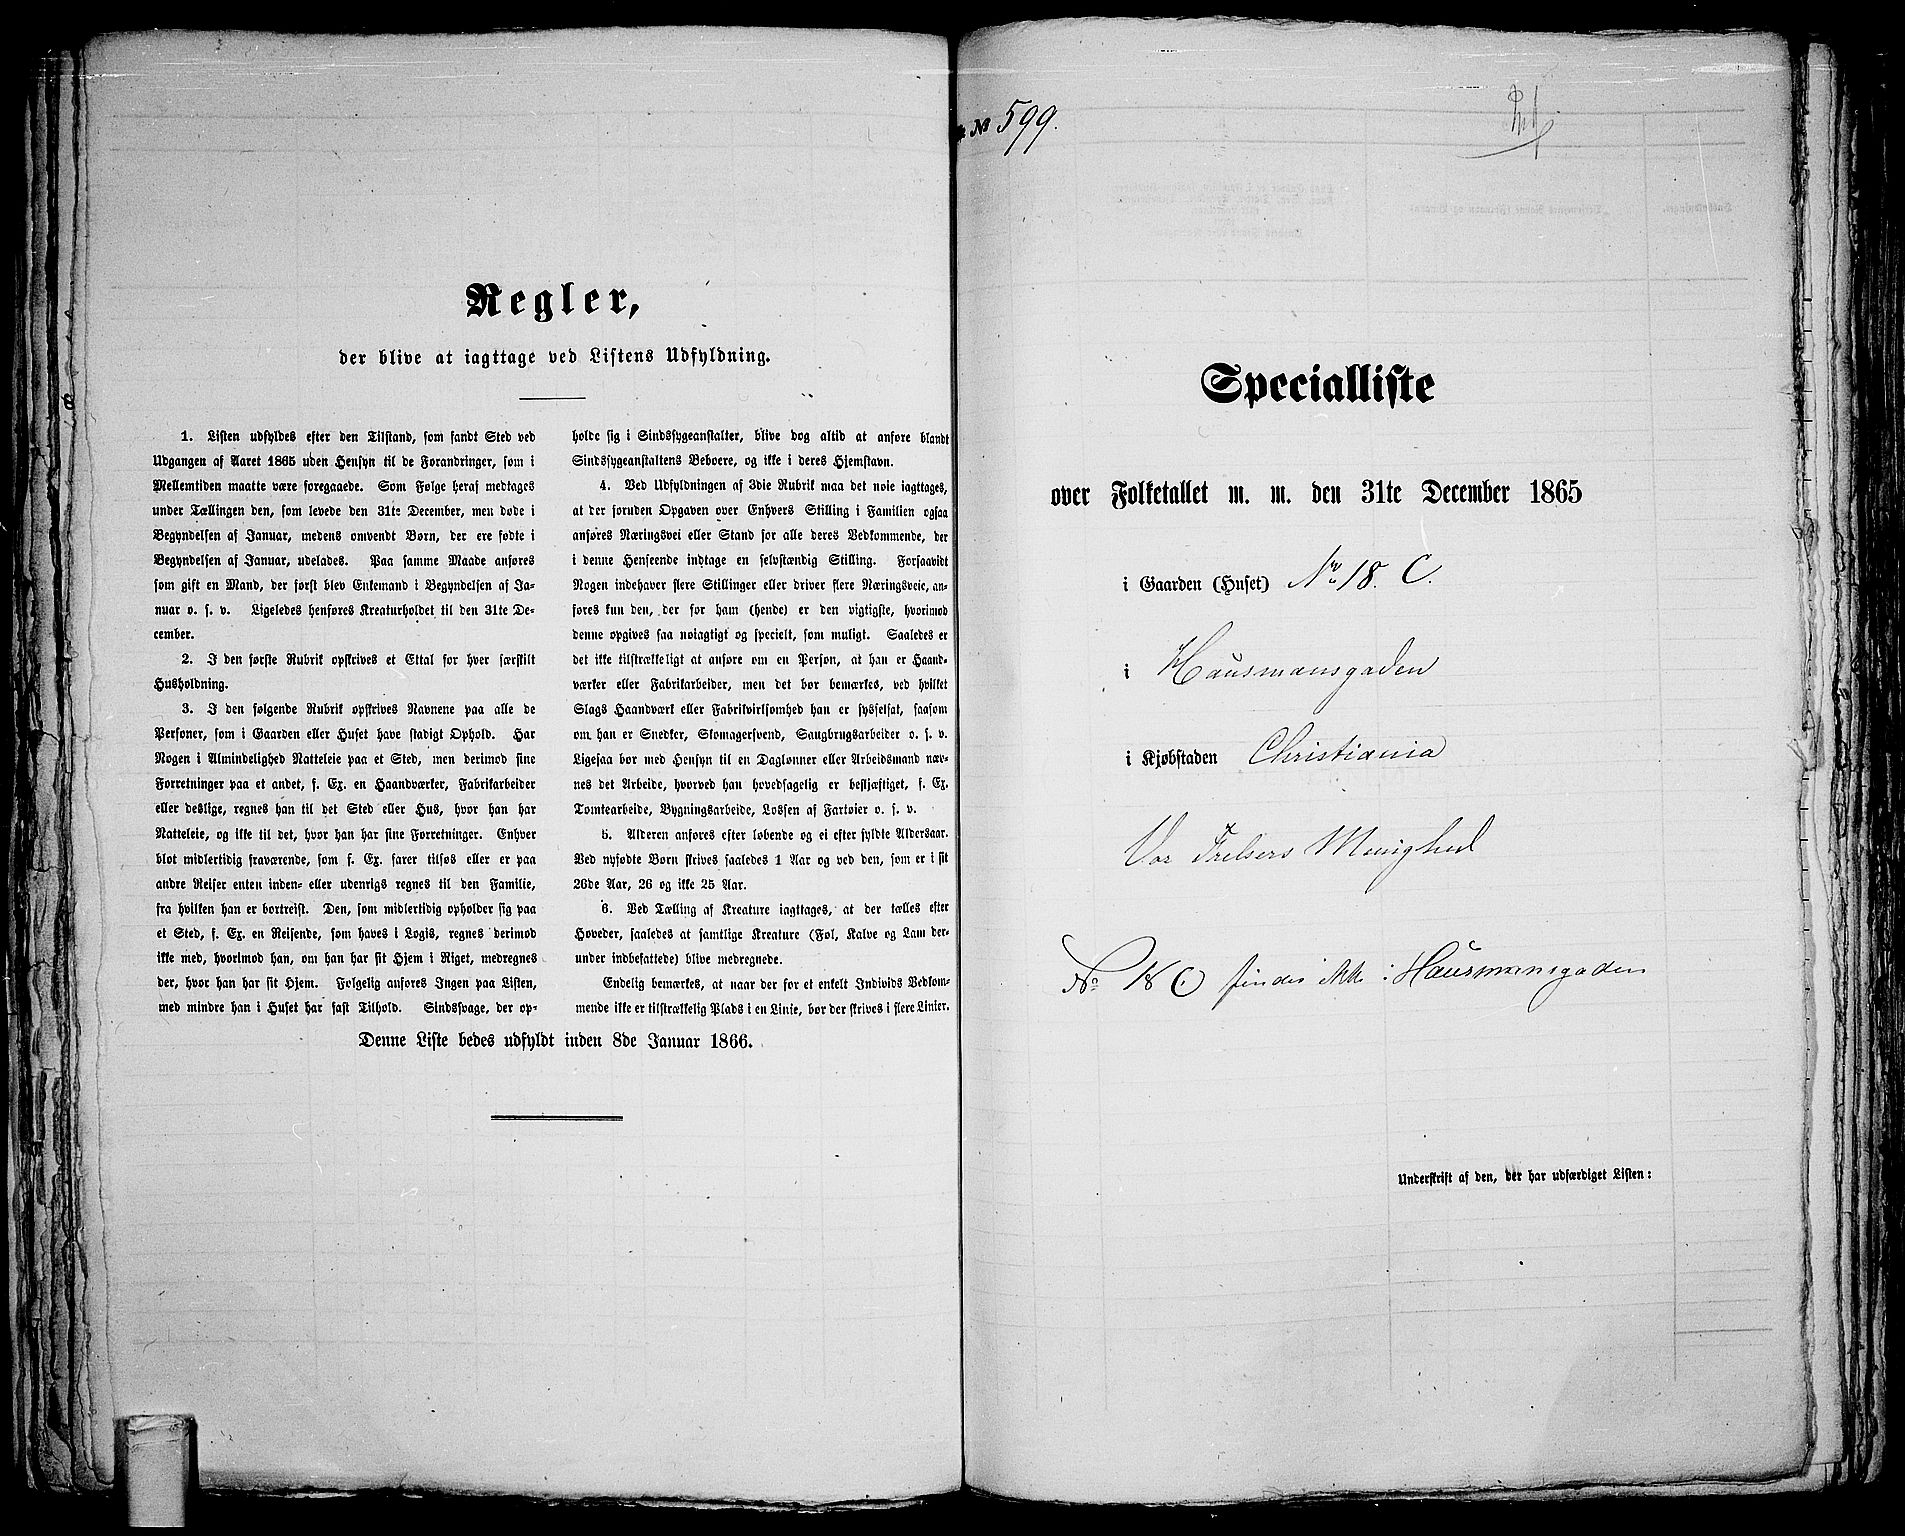 Regler,
der blive at iagttage ved Listens Udfyldning.
1. Listen udfyldes efter den Tilstand, som fandt Sted ved
Udgangen af Aaret 1865 uden Hensyn til de Forandringer, som i
Mellemtiden maatte være foregaaede. Som Følge heraf medtages
under Tællingen den, som levede den 31te December, men døde i
Begyndelsen af Januar, medens omvendt Børn, der ere fødte i
Begyndelsen af Januar, udelades. Paa samme Maade anføres
som gift en Mand, der først blev Enkemand i Begyndelsen af Ja-
nuar o. s. v. Ligeledes henføres Kreaturholdet til den 31te De-
cember.
2. I den første Rubrik opskrives et Ettal for hver særskilt
Husholdning.
3. I den følgende Rubrik opskrives Navnene paa alle de
Personer, som i Gaarden eller Huset have stadigt Ophold. Har
Nogen i Almindelighed Natteleie paa et Sted, men derimod sine
Forretninger paa et andet, f. Ex. en Haandværker, Fabrikarbeider
eller deslige, regnes han til det Sted eller Hus, hvor han har
Natteleie, og ikke til det, hvor han har sine Forretninger. Enhver
blot midlertidig fraværende, som f. Ex. farer tilsøs eller er paa
andre Reiser enten inden- eller udenrigs regnes til den Familie,
fra hvilken han er bortreist. Den, som midlertidig opholder sig paa
et Sted, f. Ex. en Reisende, som haves i Logis, regnes derimod
ikke med, hvorimod han, om han har sit Hjem i Riget, medregnes
der, hvor han har sit Hjem. Følgelig anføres Ingen paa Listen,
med mindre han i Huset har fast Tilhold. Sindssvage, der op-
holde sig i Sindssygeanstalter, blive dog altid at anføre blandt
Sindssygeanstaltens Beboere, og ikke i deres Hjemstavn.
4. Ved Udfyldningen af 3die Rubrik maa det nøie iagttages,
at der foruden Opgaven over Enhvers Stilling i Familien ogsaa
anføres Næringsvei eller Stand for alle deres Vedkommende, der
i denne Henseende indtage en selvstændig Stilling. Forsaavidt
Nogen indehaver flere Stillinger eller driver flere Næringsveie, an-
føres kun den, der for ham (hende) er den vigtigste, hvorimod
denne opgives saa nøiagtigt og specielt, som muligt. Saaledes er
det ikke tilstrækkeligt at anføre om en Person, at han er Haand-
værker eller Fabrikarbeider, men det bør bemærkes, ved hvilket
Slags Haandværk eller Fabrikvirksomhed han er sysselsat, saasom
om han er Snedker, Skomagersvend, Saugbrugsarbeider o. s. v.
Ligesaa bør med Hensyn til en Dagløнner eller Arbeidsmand næv-
nes det Arbeide, hvorved han hovedsagelig er beskjæftiget, f. Ex.
Tomtearbeide, Bygningsarbeide, Lossen af Fartøier o. s. v.
5. Alderen anføres efter løbende og ei efter fyldte Aldersaar.
Ved nyfødte Børn skrives saaledes 1 Aar og ved den, som er i sit
26de Aar, 26 og ikke 25 Aar.
6. Ved Tælling af Kreature iagttages, at der tælles efter
Hoveder, saaledes at samtlige Kreature (Føl, Kalve og Lam der-
under indbefattede) blive medregnede.
Endelig bemærkes, at naar der for et enkelt Individs Vedkom-
mende ikke er tilstrækkelig Plads i en Linie, bør der skrives i flere Linier.
Denne Liste bedes udfyldt inden 8de Januar 1866.
No 599.
Specialliste
over Folketallet m. m. den 31te December 1865
i Gaarden (Huset) Nr. 18. C.
i Hausmansgaden
i Kjøbstaden Christiania
Vor Frelsers Menighed
No 18 C findes ikke i Hausmansgaden
Underskrift af den, der har udfærdiget Listen: